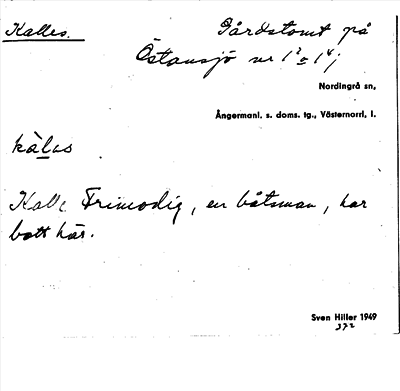 Kalles. Gårdstomt på
Östansjö nr 1² o 1⁴;
Nordingrå sn,
Ångermanl. s. doms. tg., Västernorrl. l.
kàlas
Kalle Frimodig, en båtsman, har
bott här.
Sven Hiller 1949
372